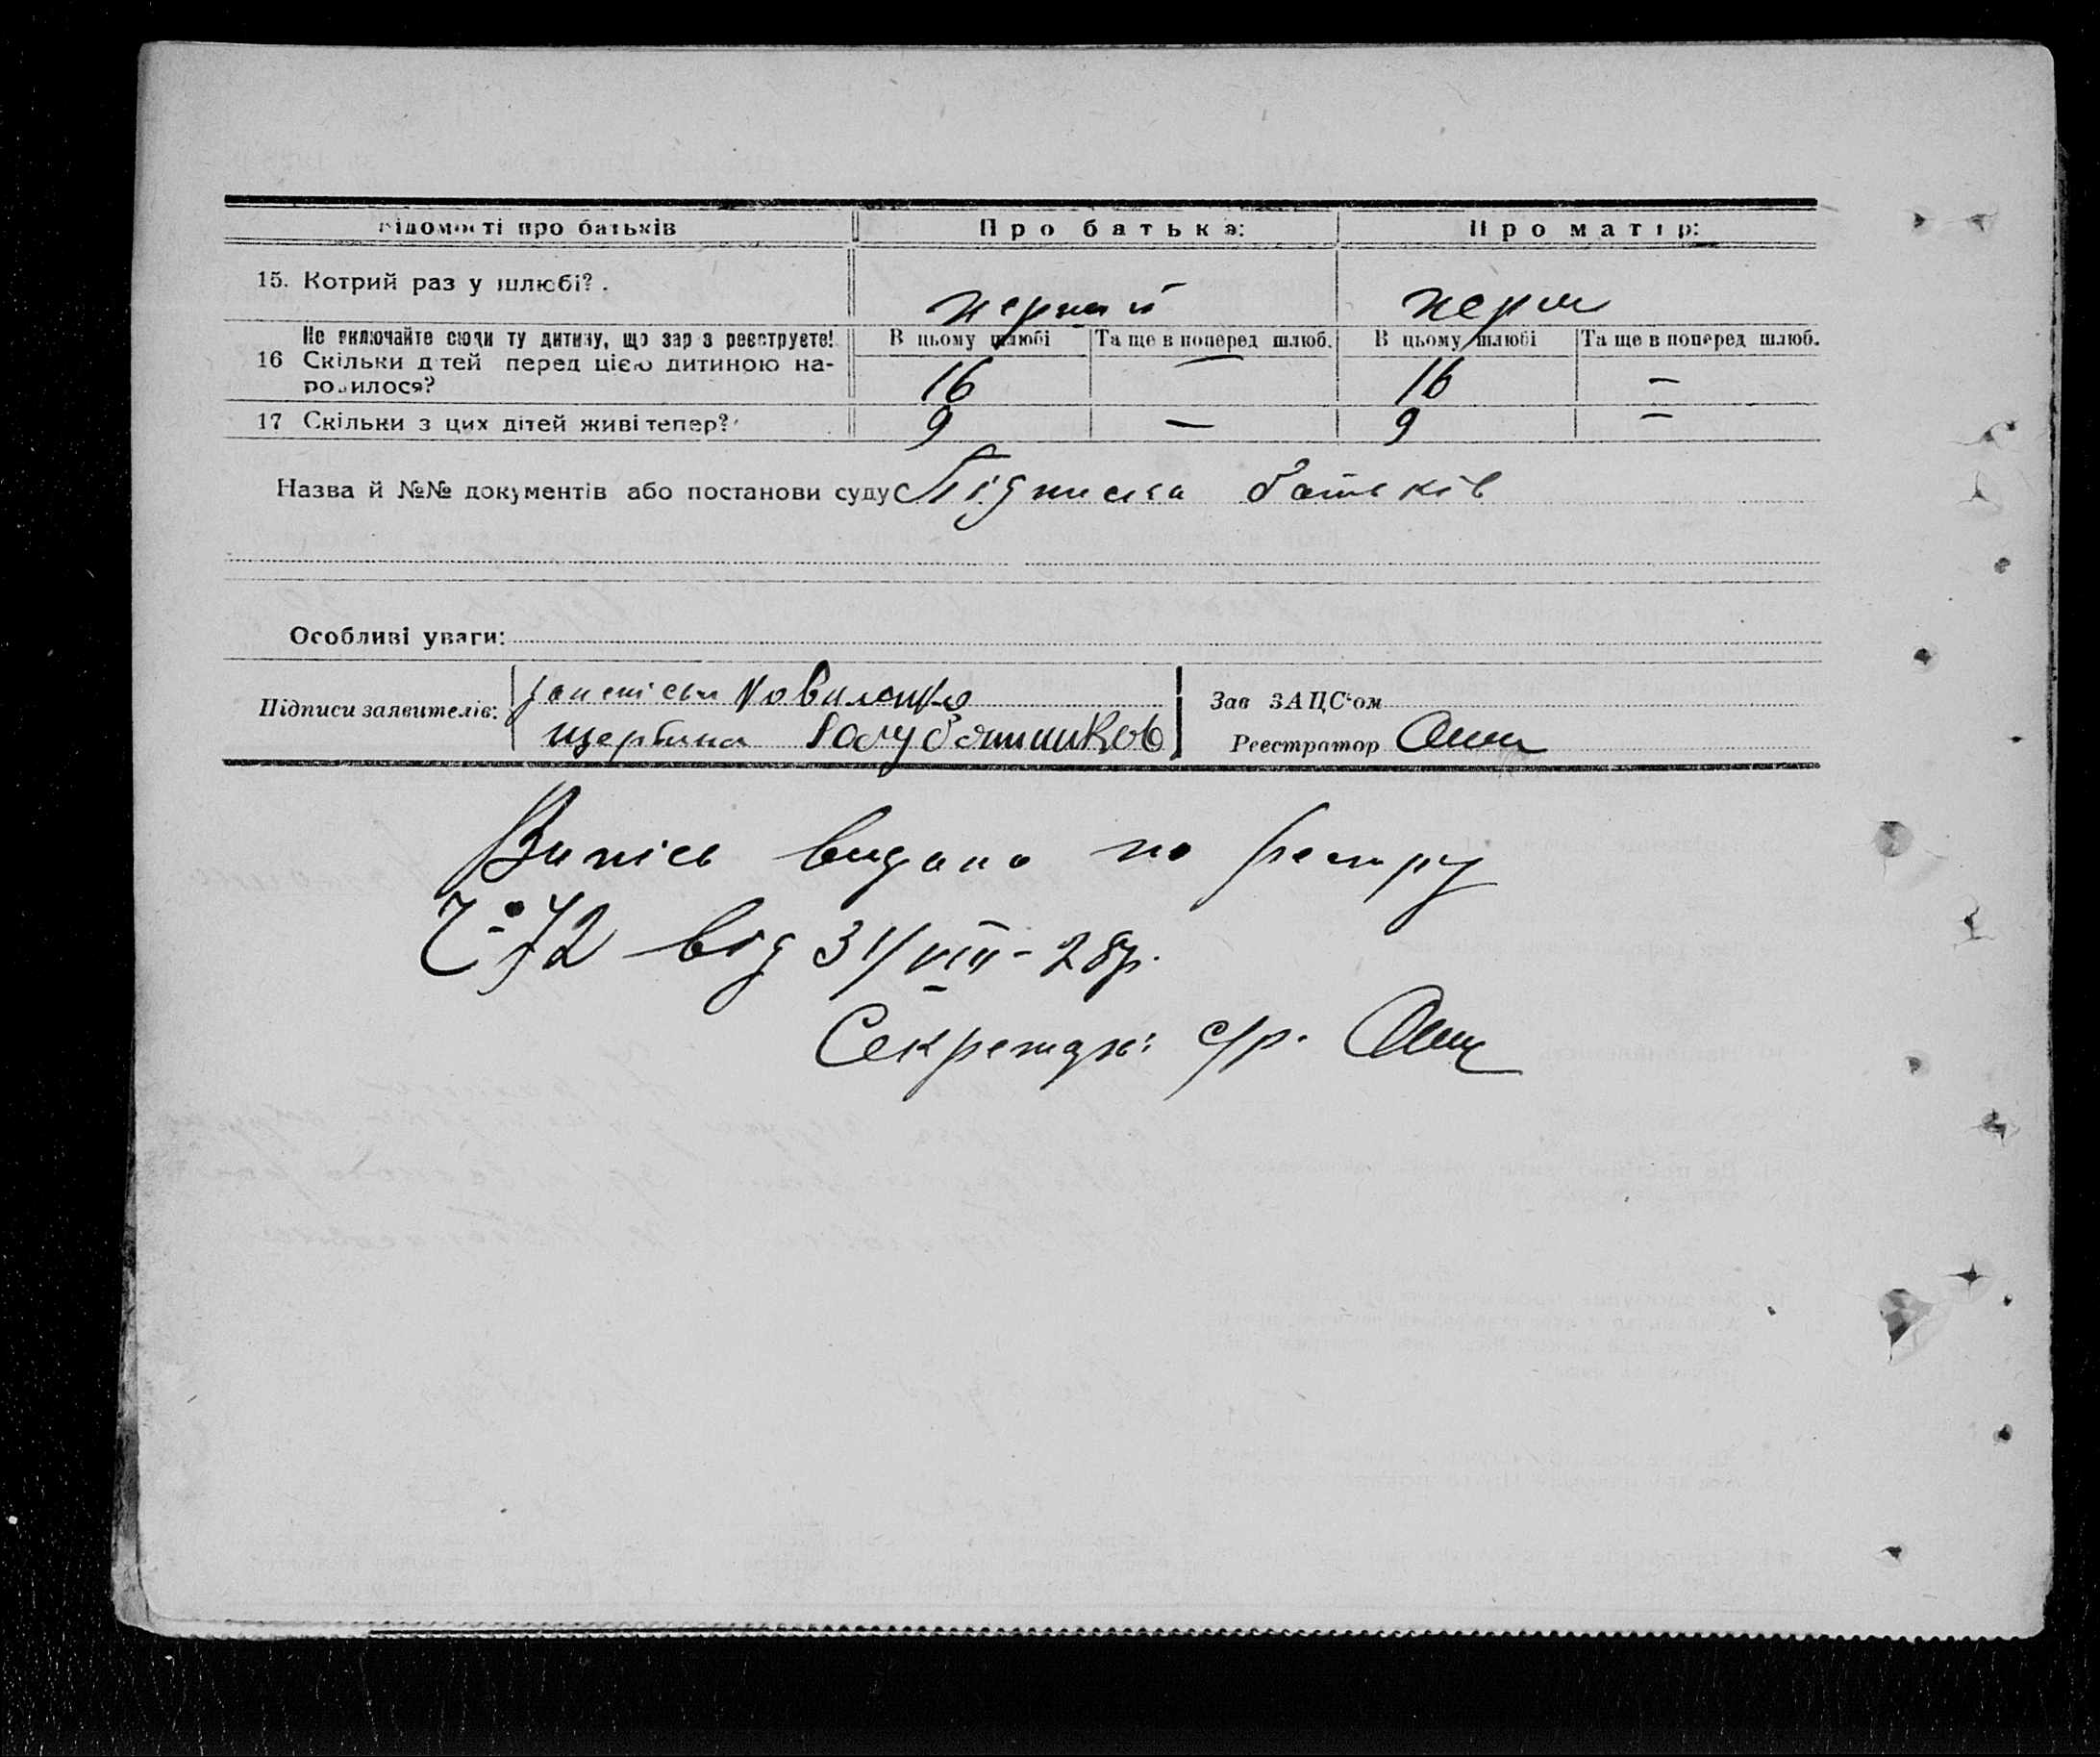 відомості про батьків Про батька: Про матір:
15. Котрий раз у шлюбі? перший перш
Не включайте сюди ту дитину, що зараз реєструєте! В цьому шлюбі Та ще в поперед шлюб. В цьому шлюбі Та ще в поперед шлюб.
16 Скільки дітей перед цією дитиною на- 16 — 16 —
родилося?
17 Скільки з цих дітей живі тепер? 9 — 9 —
Назва й №№ документів або постанови суду Підписка батьків
Особливі уваги:
Підписи заявителів: Коваленко Зав ЗАЦС'ом
Щербина Реєстратор
Випісь видано по реєстру
72 від 31/VIII-28р.
Секретарь: с/р.